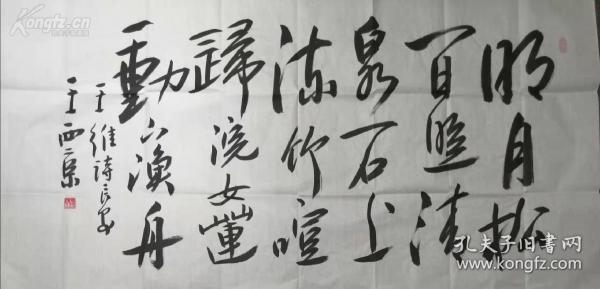 明月松
間照清
泉石上
流竹喧
歸浣女蓮
動下漁舟
王維詩長安
王西京
Kongfz.com
孔夫子旧书网
www.kongfz.com